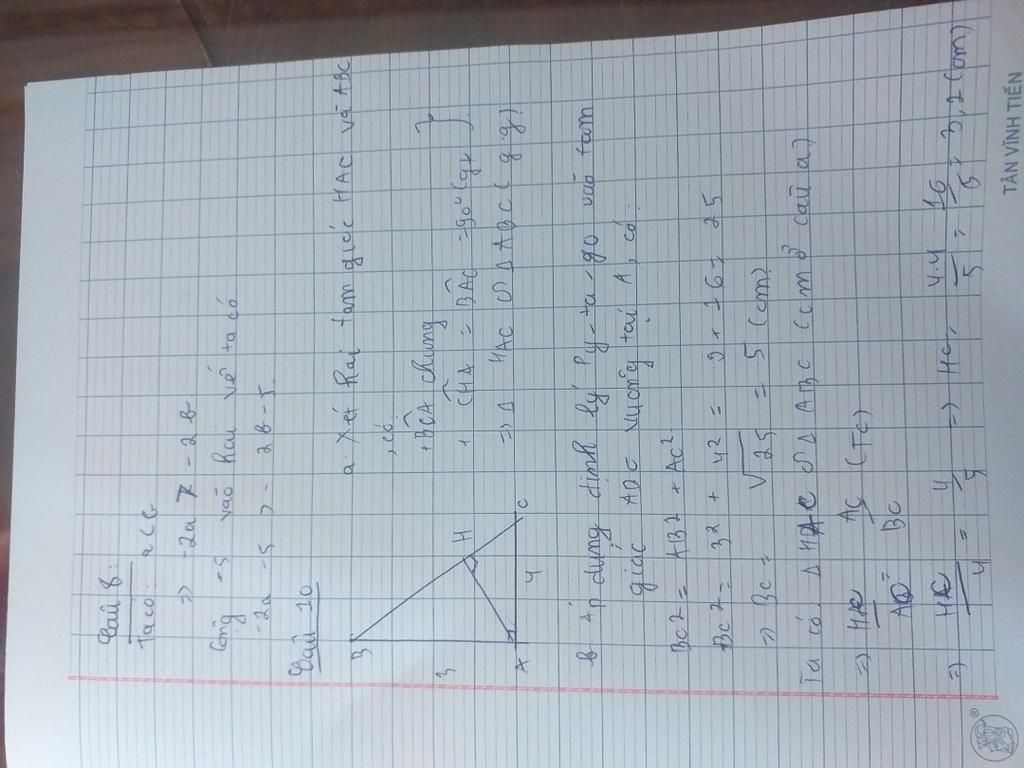 Câu 8:
Ta có: a < b
=> -2a > -2b
Cộng -5 vào hai vế ta có
-2a - 5 > - 2b - 5
Câu 10
B
3
A
H
4
C
a. Xét hai tam giác HAC và ABC
, có
+ BCA chung
+ CHA = BAC = 90° (gt) }
=> Δ HAC ∽ Δ ABC (g.g)
b. Áp dụng định lý Py-ta-go vào tam
giác ABC vuông tại A, có:
BC2 = AB2 + AC2
BC2 = 32 + 42 = 9 + 16 = 25
=> BC = √25 = 5 (cm)
Ta có Δ HAC ∽ Δ ABC (cm ở câu a)
=> HC/AC = AC/BC (TC)
=> HC/4 = 4/5 => HC = 4.4/5 = 16/5 = 3,2 (cm)
TÂN VĨNH TIẾN
®